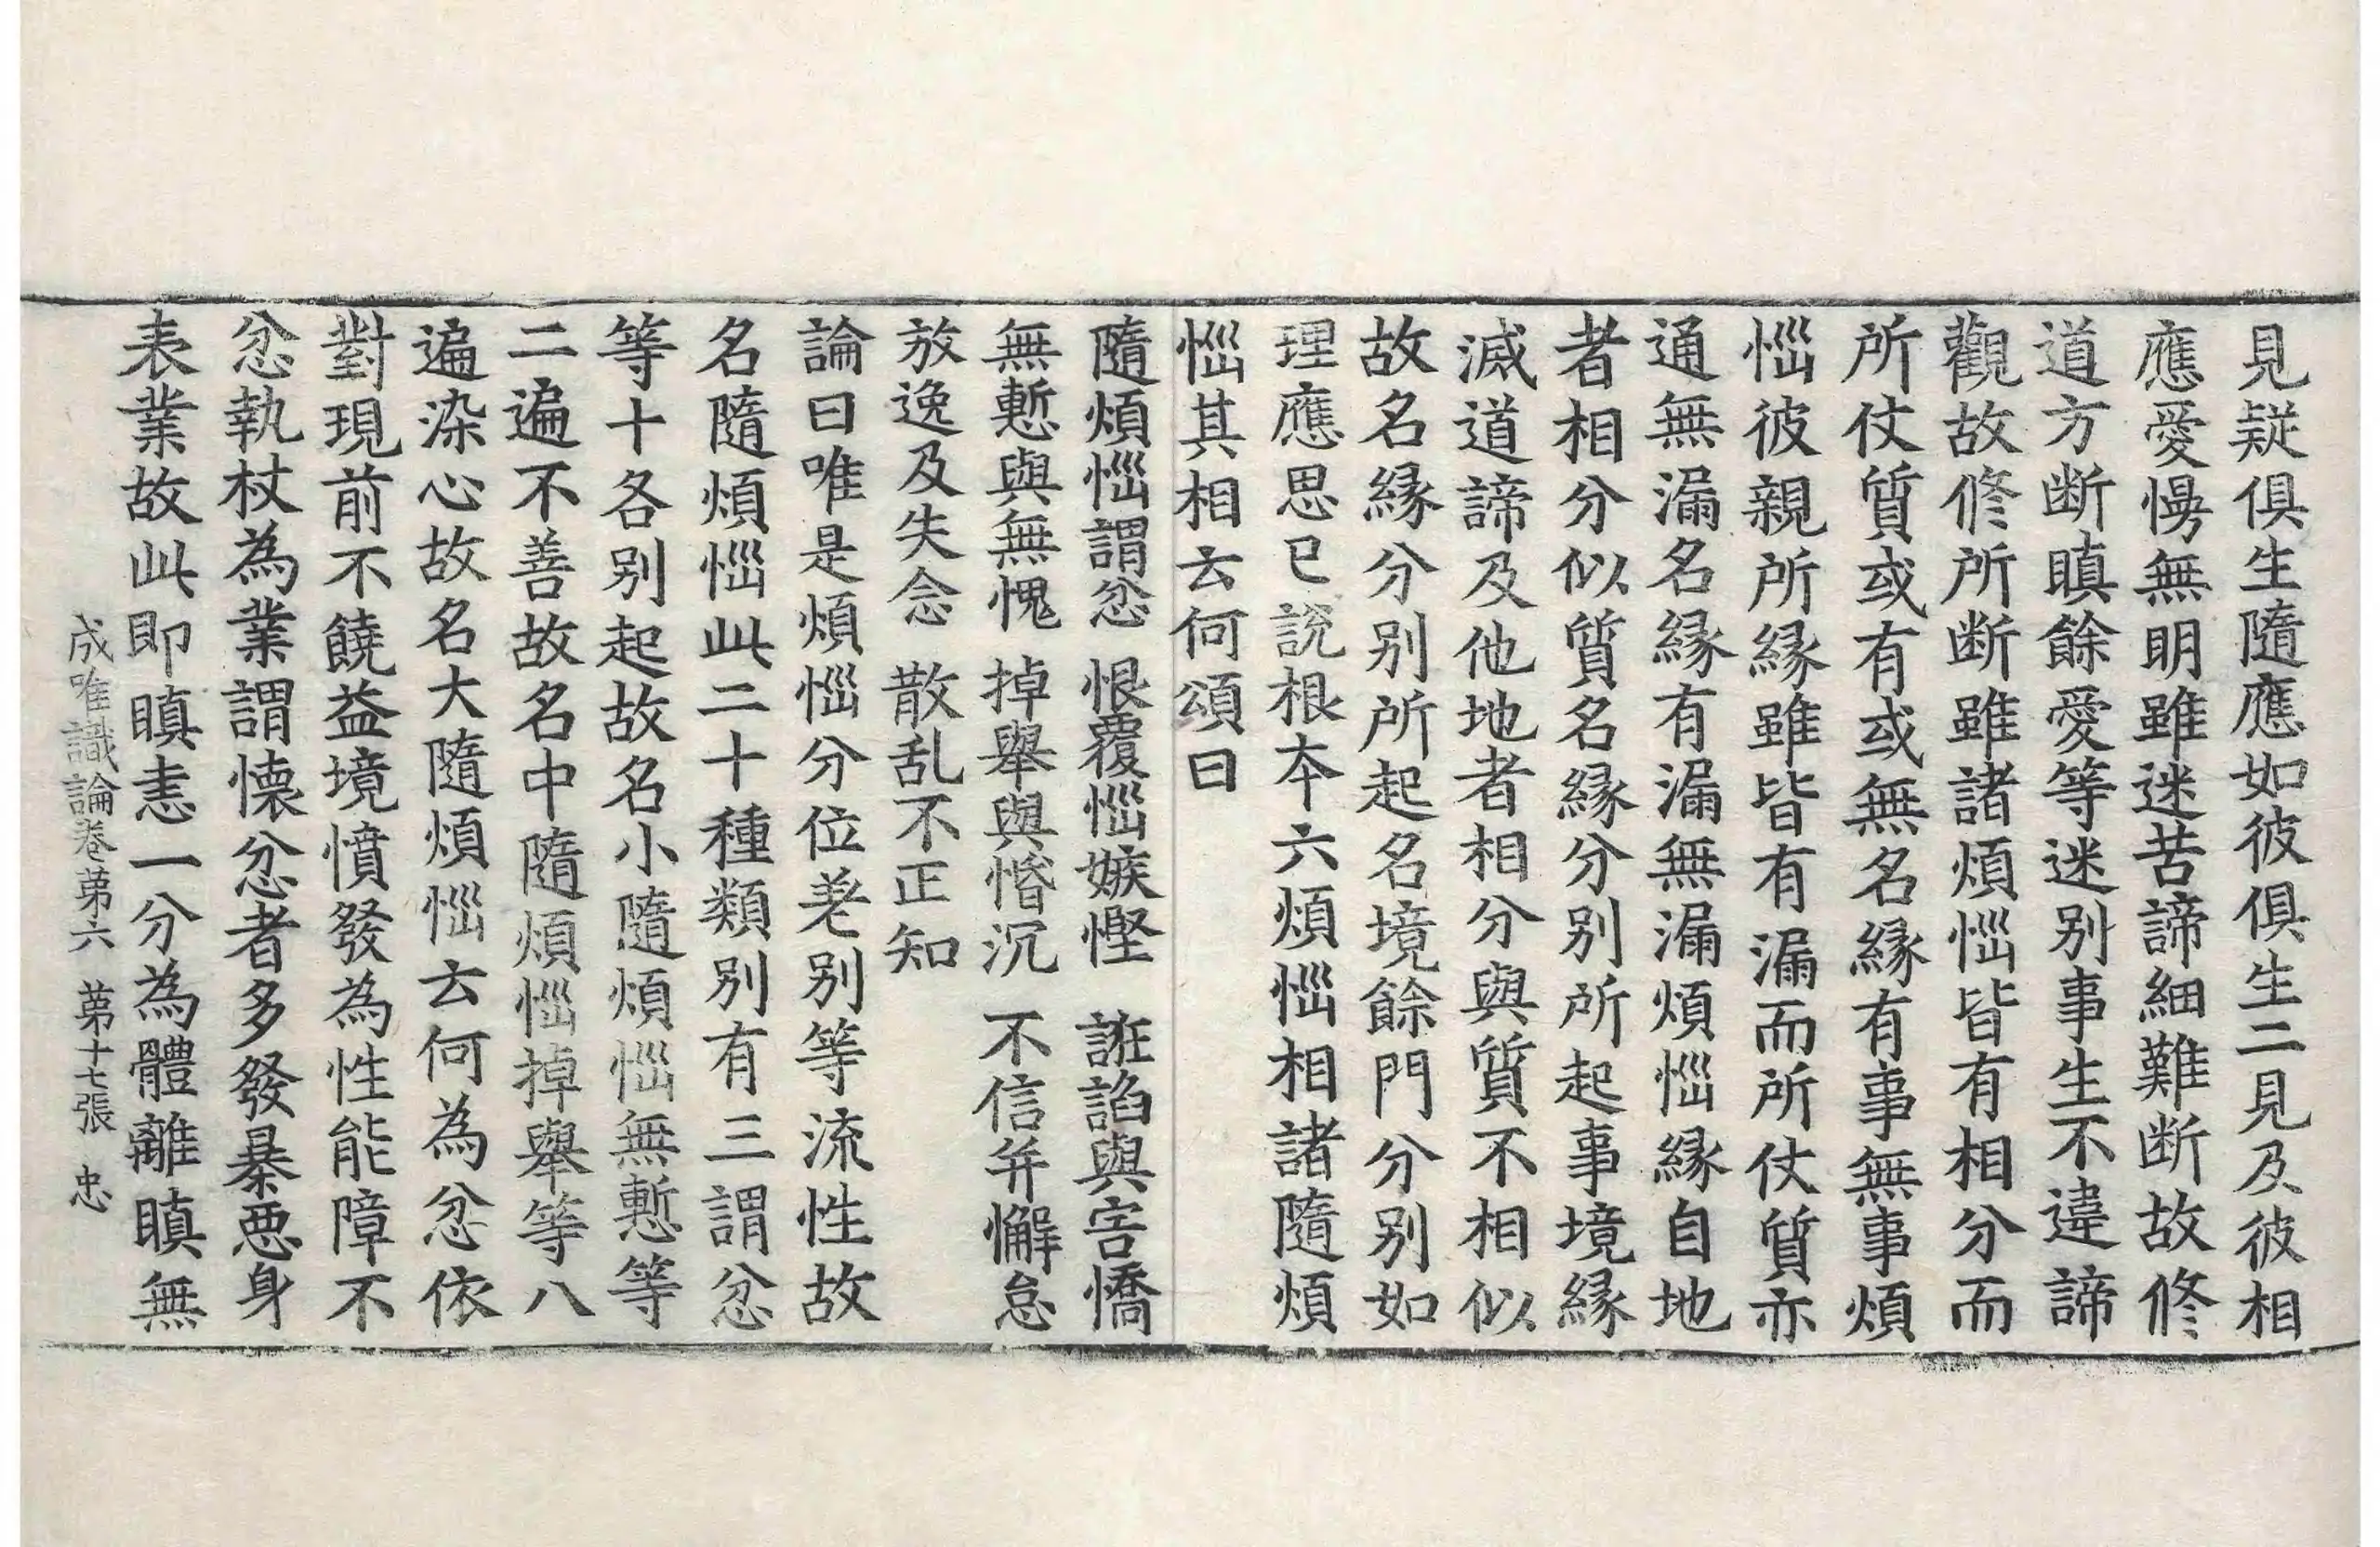 見疑俱生隨應如彼俱生二見及彼相
應愛慢無明雖迷苦諦細難断故修
道方断瞋餘愛等迷别事生不違諦
觀故修所断雖諸煩惱皆有相分而
所仗質或有或無名緣有事無事煩
惱彼親所緣雖皆有漏而所仗質亦
通無漏名緣有漏無漏煩惱緣自地
者相分似質名緣分别所起事境緣
滅道諦及他地者相分與質不相似
故名緣分别所起名境餘門分别如
理應思已説根本六煩惱相諸隨煩
惱其相云何頌曰
隨煩惱謂忿 恨覆惱嫉慳 誑諂與害憍
無慙與無愧 掉舉與惛沉 不信并懈怠
放逸及失念 散乱不正知
論曰唯是煩惱分位差别等流性故
名隨煩惱此二十種類别有三謂忿
等十各别起故名小隨煩惱無慙等
二遍不善故名中隨煩惱掉舉等八
遍染心故名大隨煩惱云何為忿依
對現前不饒益境憤發為性能障不
忿執杖為業謂懷忿者多發暴惡身
表業故此即瞋恚一分為體離瞋無
成唯識論卷第六 第十七張 忠